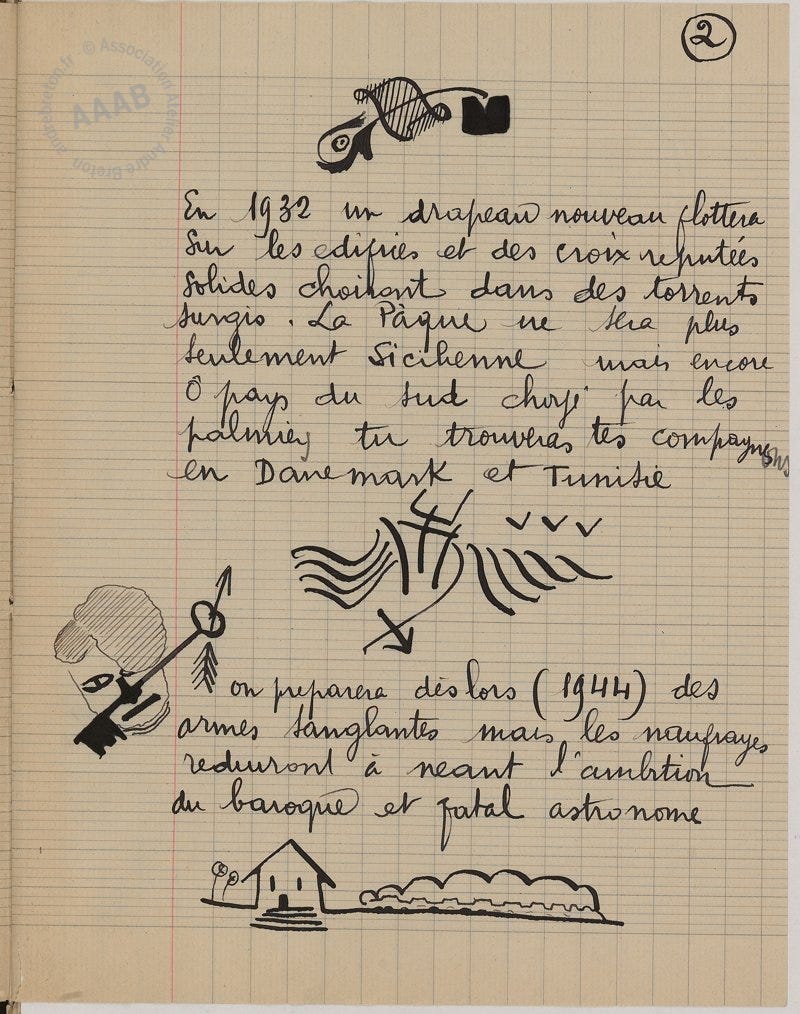 2
© Association Atelier André Breton
andrebreton.fr
AAAB
En 1932 un drapeau nouveau flottera
Sur les edifices et des croix reputées
Solides choiront dans des torrents
surgis. La Pâque ne sera plus
seulement Sicilienne mais encore
Ô pays du sud chargé par les
palmiers tu trouveras tes compagnons
en Danemark et Tunisie
on preparera dès lors (1944) des
armes sanglantes mais les naufrages
reduiront à neant l'ambition
du baroque et fatal astronome